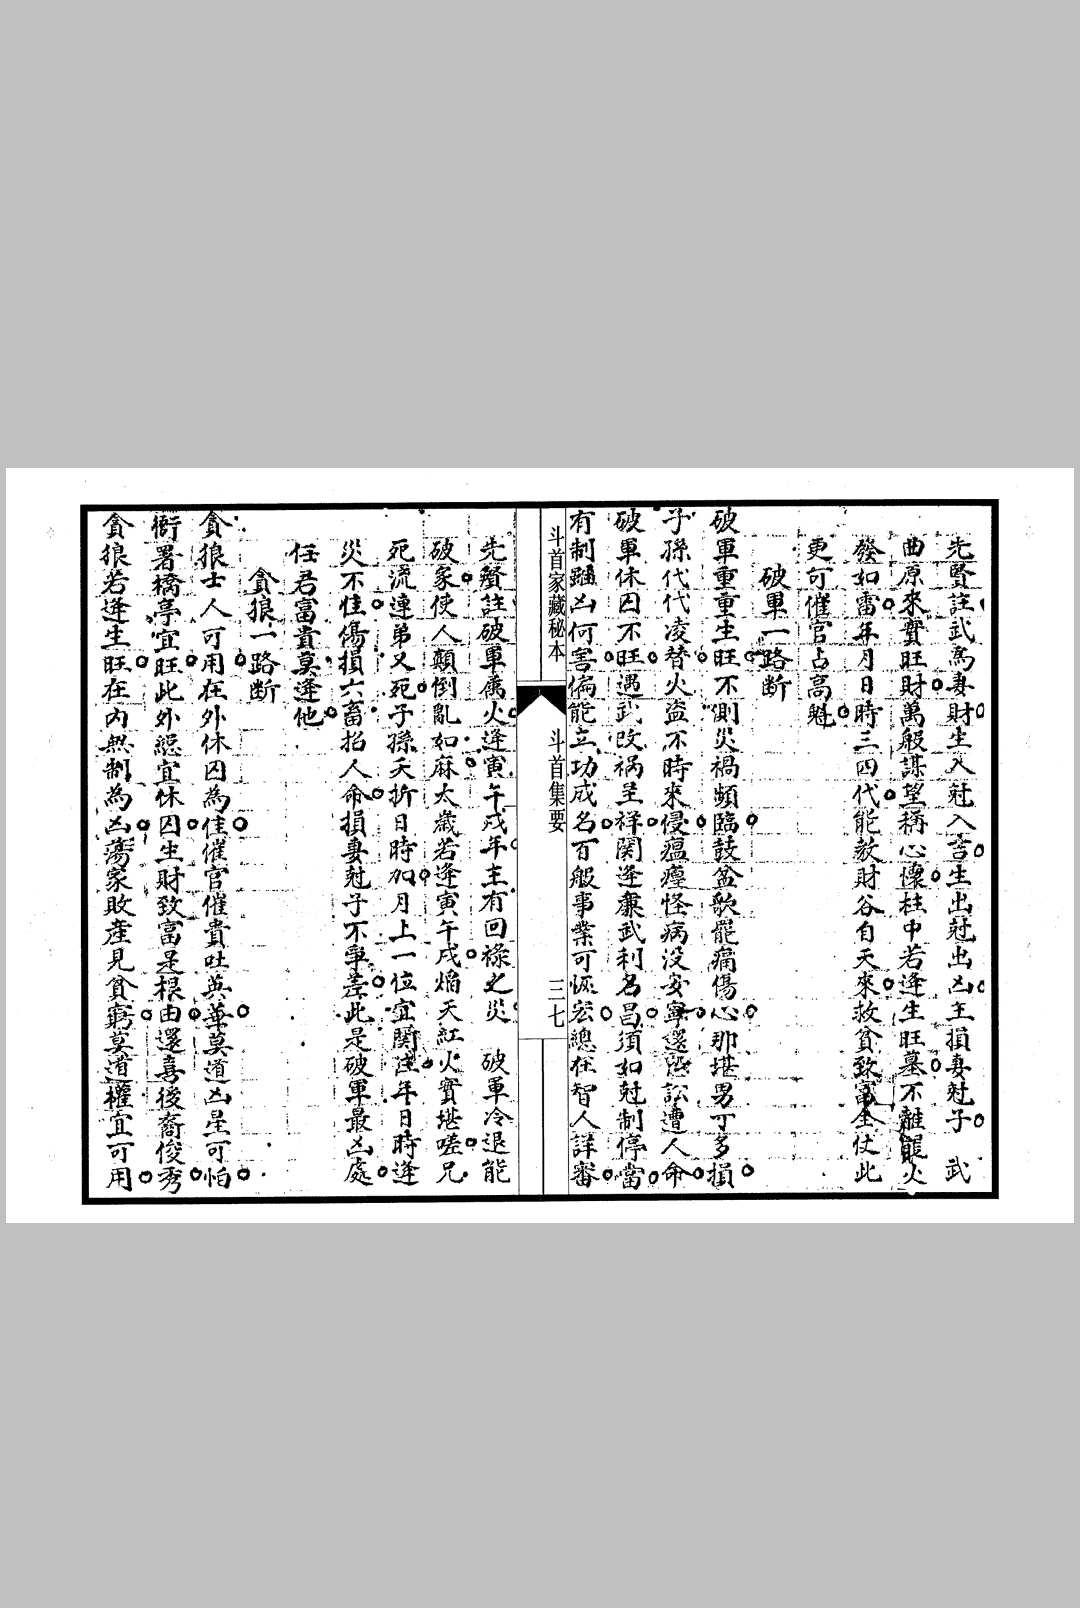 先賢註武為妻財生入尅入吉生出尅出凶主損妻尅子　武
曲原來實旺財萬般謀望稱心懷柱中若逢生旺墓不離龍火
發如雷年月日時三四代能教財谷自天來救貧致富全仗此
更可催官占高魁
破軍一路断
破軍重重生旺不測災禍頻臨鼓盆歌罷痛傷心那堪男丁多損
子孫代代凌替火盗不時來侵瘟癧怪病没安寧還恐訟遭人命
破軍休囚不旺遇武改祸呈祥関逢廉武利名昌須如尅制停當
有制雖凶何害偏能立功成名百般事業可恢宏總在智人詳審
斗首家藏秘本
斗首集要
三七
先賢註破軍属火逢寅午戍年主有回祿之災　破軍冷退能
破家使人顛倒亂如麻太歲若逢寅午戍焰天紅火實堪嗟兄
死流連弟又死子孫夭折日時加月上一位宜関注年日時逢
災不佳傷損六畜招人命損妻尅子不爭差此是破軍最凶處
任君富貴莫逢他
貪狼一路断
貪狼士人可用在外休囚為佳催官催貴吐英華莫道凶星可怕
衙署橋亭宜旺此外總宜休囚生財致富是根由還喜後裔俊秀
貪狼若逢生旺在内無制為凶蕩家敗産見貧窮莫道權宜可用